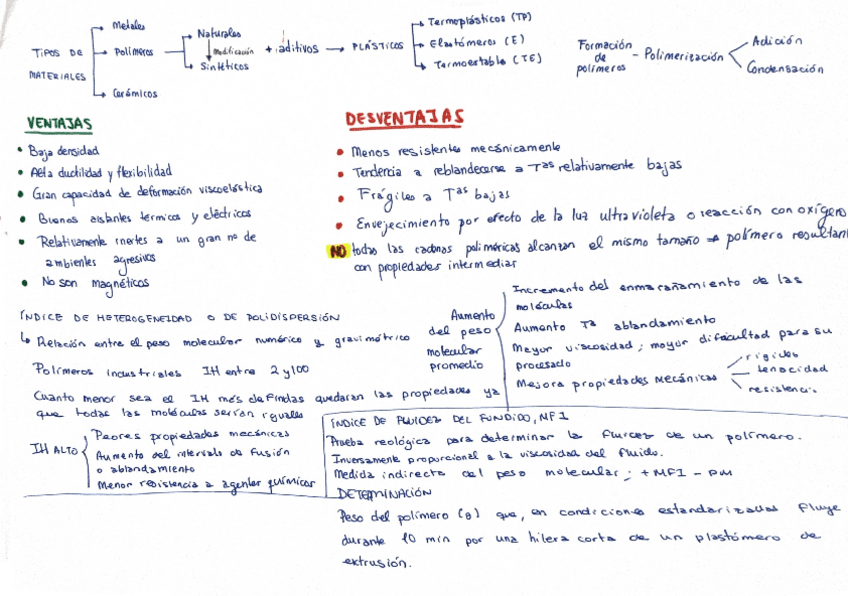 TIPOS DE MATERIALES
Metales
Polímeros
Cerámicos
Naturales
Modificación
Sintéticos
+ aditivos → PLÁSTICOS
Termoplásticos (TP)
Elastómeros (E)
Termoestable (TE)
Formación de polímeros - Polimerización
Adición
Condensación
VENTAJAS
• Baja densidad
• Alta ductilidad y flexibilidad
• Gran capacidad de deformación viscoelástica
• Buenos aislantes térmicos y eléctricos
• Relativamente inertes a un gran nº de
ambientes agresivos
• No son magnéticos
DESVENTAJAS
• Menos resistentes mecánicamente
• Tendencia a reblandecerse a Tas relativamente bajas
• Frágiles a Tas bajas
• Envejecimiento por efecto de la luz ultravioleta o reacción con oxígeno
NO todas las cadenas poliméricas alcanzan el mismo tamaño → polímero resultan
con propiedades intermedias
ÍNDICE DE HETEROGENEIDAD O DE POLIDISPERSIÓN
↳ Relación entre el peso molecular numérico y gravimétrico
Polímeros industriales IH entre 2 y 100
Cuanto menor sea el IH más definidas quedaran las propiedades ya
que todas las moléculas serían iguales
IH ALTO
Peores propiedades mecánicas
Aumento del intervalo de fusión
o ablandamiento
Menor resistencia a agentes químicos
Aumento
del peso
molecular
promedio
Incremento del enmarañamiento de las
moléculas
Aumento Tª ablandamiento
Mayor viscosidad; mayor dificultad para su
procesado
Mejora propiedades mecánicas
rigidez
tenacidad
resistencia
ÍNDICE DE FLUIDEZ DEL FUNDIDO, MFI
Prueba reológica para determinar la fluidez de un polímero.
Inversamente proporcional a la viscosidad del fluido.
Medida indirecta del peso molecular; + MFI - PM
DETERMINACIÓN
Peso del polímero (g) que, en condiciones estandarizadas fluye
durante 10 min por una hilera corta de un plastómero de
extrusión.